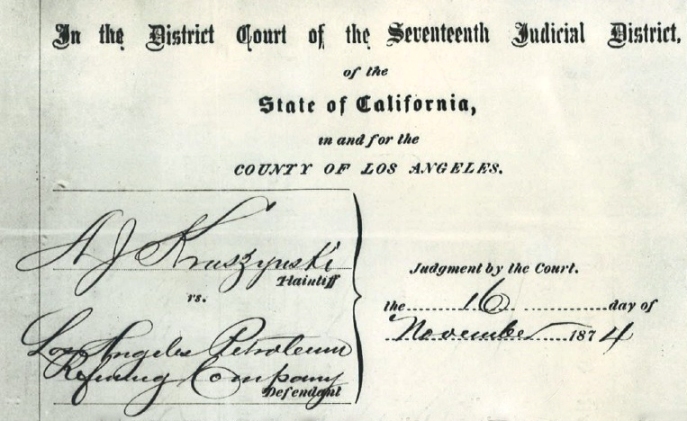 In the District Court of the Seventeenth Judicial District,
of the
State of California,
in and for the
COUNTY OF LOS ANGELES.
A J Kraszynski
Plaintiff
vs.
Los Angeles Petroleum
Refining Company
Defendant
Judgment by the Court.
the 16 day of
November 1874